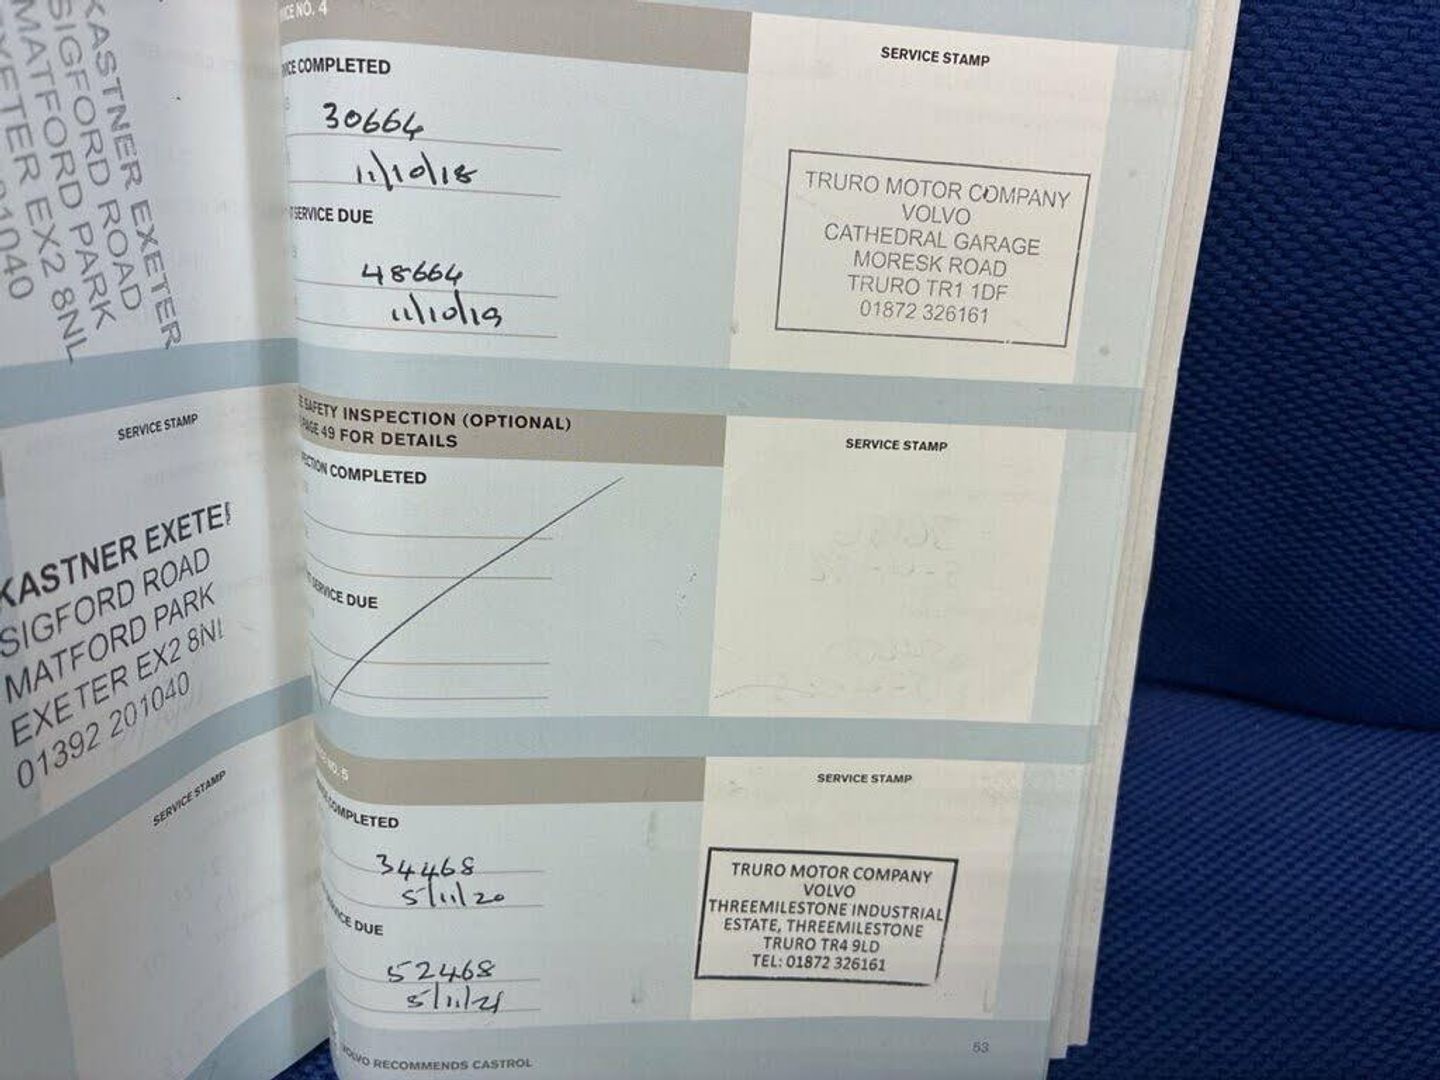 KASTNER EXETER
SIGFORD ROAD
MATFORD PARK
EXETER EX2 8NL
01040
SERVICE STAMP
KASTNER EXETER
SIGFORD ROAD
MATFORD PARK
EXETER EX2 8NL
01392 201040
SERVICE STAMP
NO. 4
COMPLETED
30664
11/10/18
SERVICE DUE
48664
11/10/19
SERVICE STAMP
TRURO MOTOR COMPANY
VOLVO
CATHEDRAL GARAGE
MORESK ROAD
TRURO TR1 1DF
01872 326161
SAFETY INSPECTION (OPTIONAL)
PAGE 49 FOR DETAILS
COMPLETED
SERVICE DUE
SERVICE STAMP
NO. 5
COMPLETED
34468
5/11/20
DUE
52468
5/11/21
SERVICE STAMP
TRURO MOTOR COMPANY
VOLVO
THREEMILESTONE INDUSTRIAL
ESTATE, THREEMILESTONE
TRURO TR4 9LD
TEL: 01872 326161
VOLVO RECOMMENDS CASTROL
53